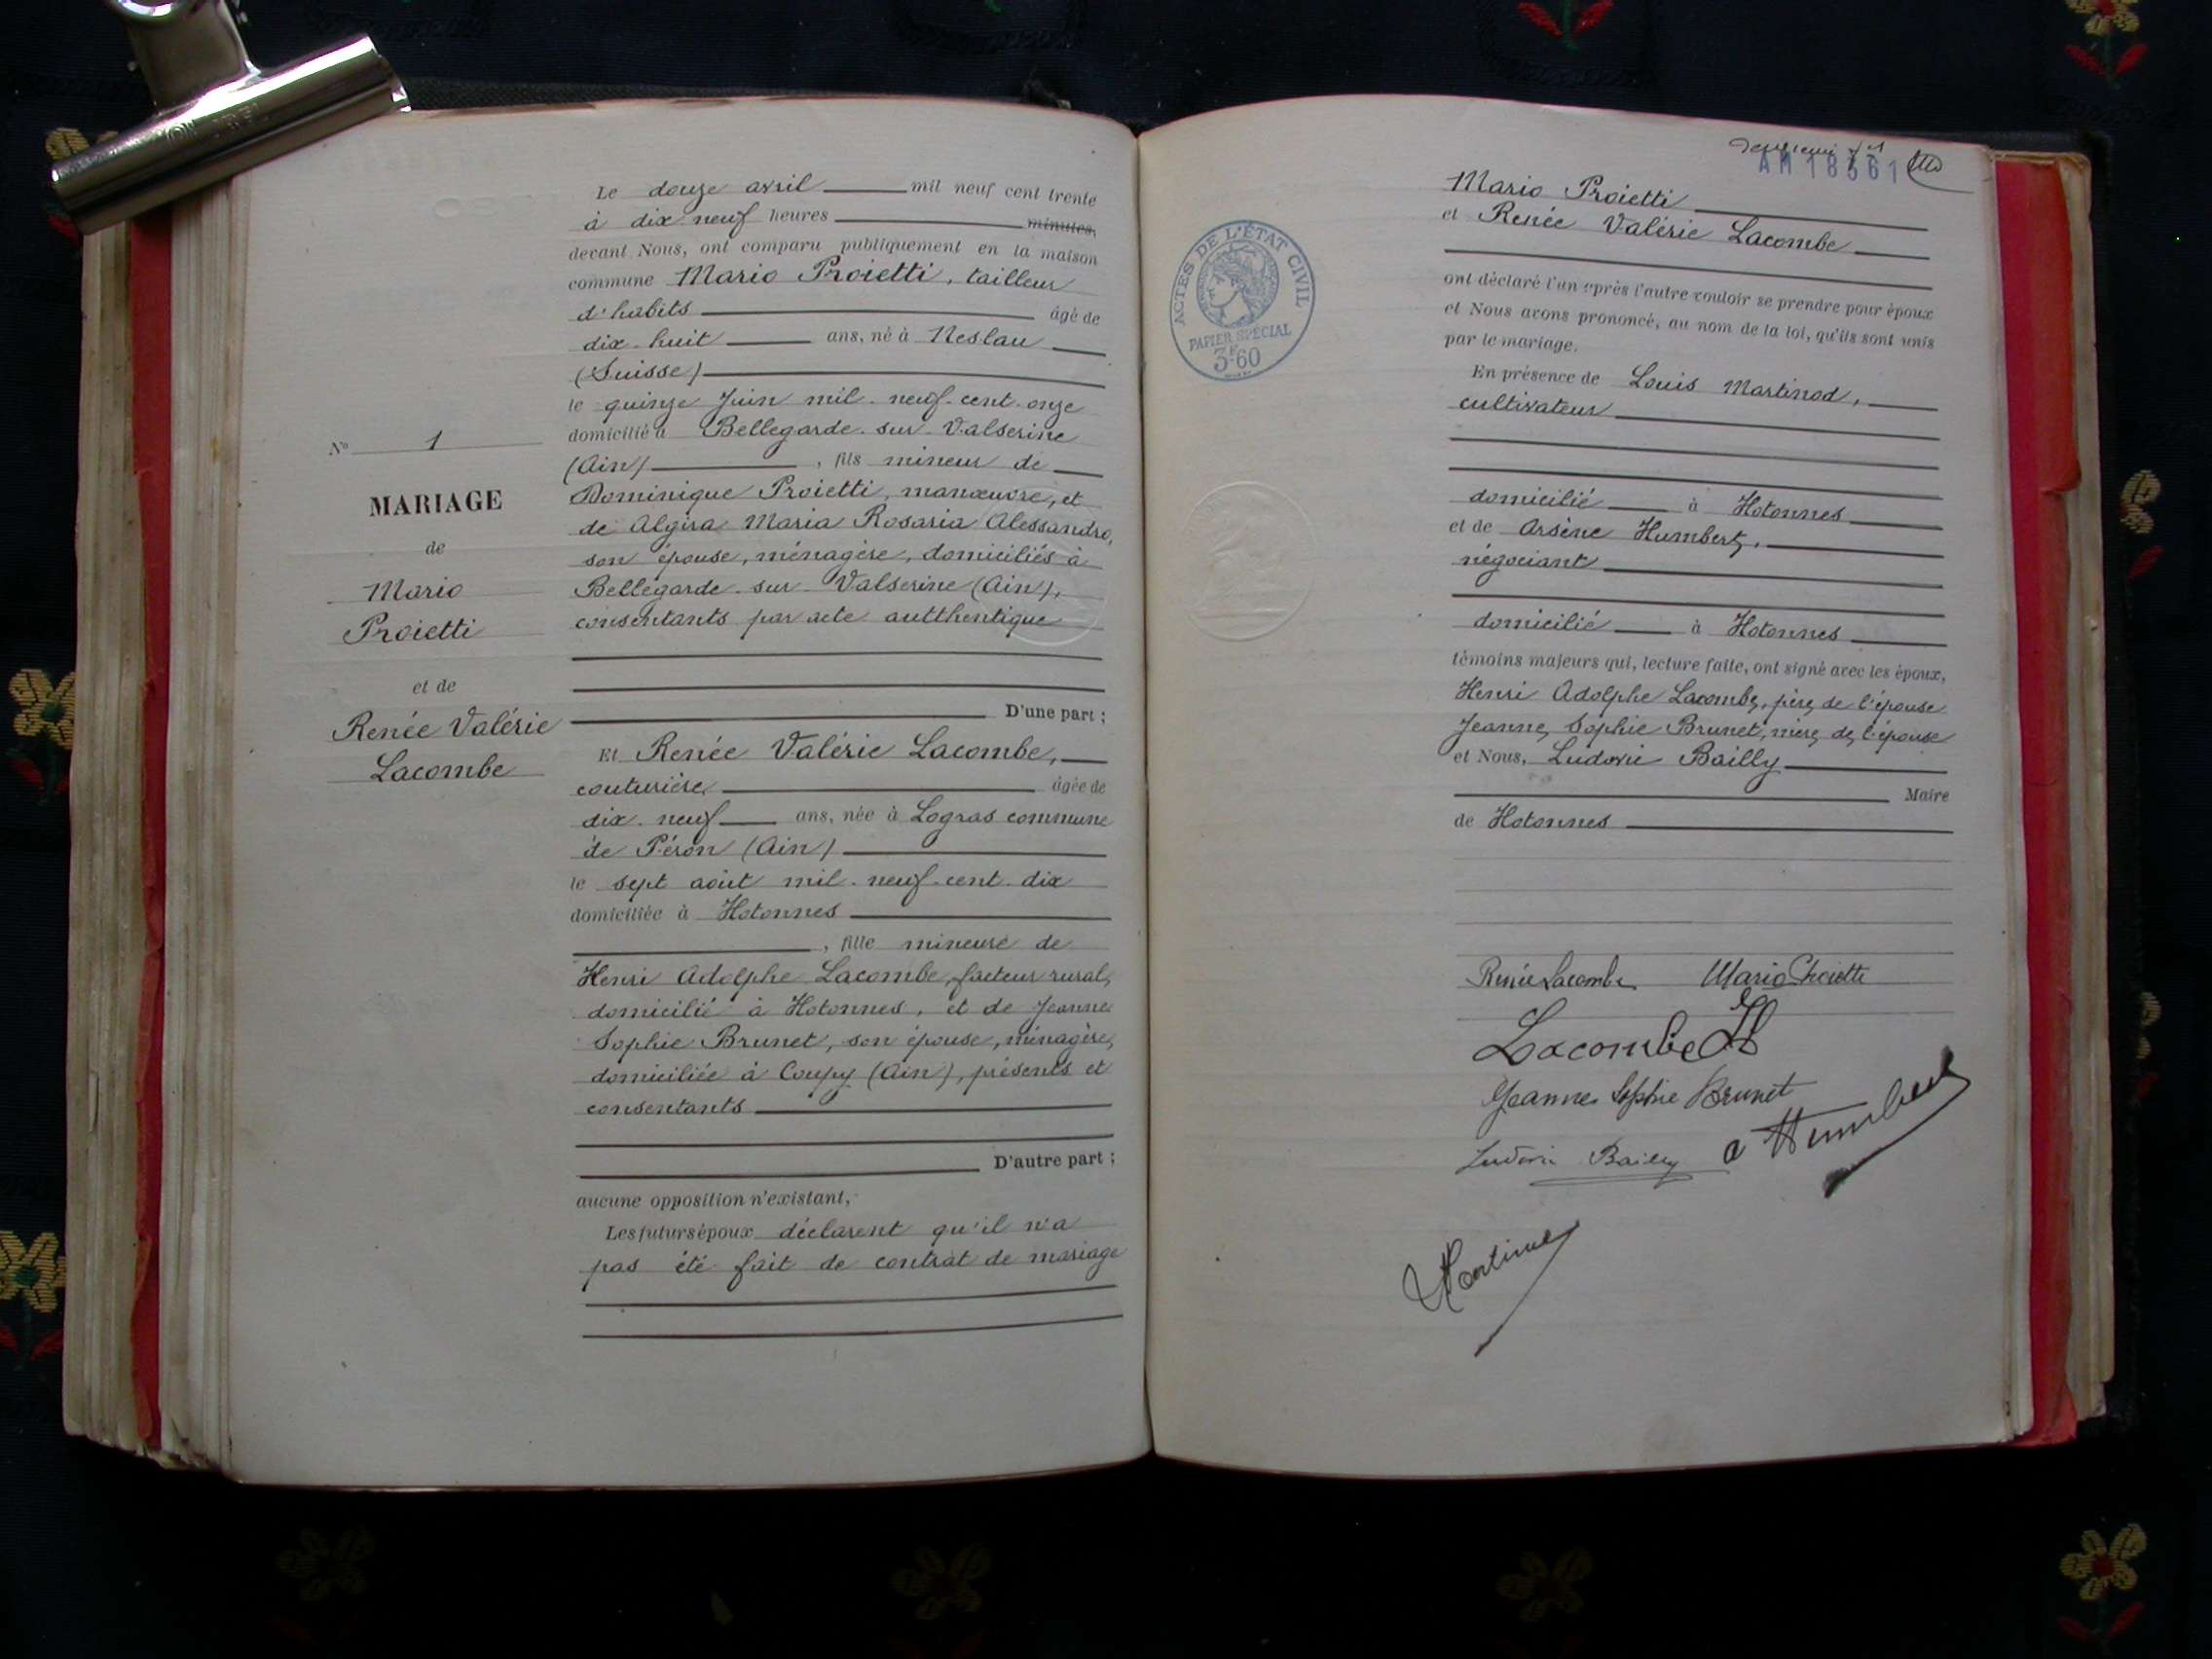 Le douze avril mil neuf cent trente
à dix neuf heures minutes,
devant Nous, ont comparu publiquement en la maison
commune Mario Proietti, tailleur
d'habits âgé de
dix-huit ans, né à Neslau
(Suisse)
le quinze Juin mil-neuf-cent-onze
domicilié à Bellegarde-sur-Valserine
(Ain), fils mineur de
Dominique Proietti, manœuvre, et
de Algira Maria Rosaria Alessandro,
son épouse, ménagère, domiciliés à
Bellegarde-sur-Valserine (Ain),
consentants par acte autthentique
D'une part ;
Et Renée Valérie Lacombe,
couturière âgée de
dix-neuf ans, née à Logras commune
de Péron (Ain)
le sept août mil-neuf-cent-dix
domiciliée à Hotonnes
, fille mineure de
Henri Adolphe Lacombe, facteur rural,
domicilié à Hotonnes, et de Jeanne
Sophie Brunet, son épouse, ménagère,
domiciliée à Coupy (Ain), présents et
consentants
D'autre part ;
aucune opposition n'existant,
Les futurs époux déclarent qu'il n'a
pas été fait de contrat de mariage
No 1
MARIAGE
de
Mario
Proietti
et de
Renée Valérie
Lacombe
AM 18561
ACTES DE L'ÉTAT CIVIL
PAPIER SPÉCIAL
3F60
Mario Proietti
et Renée Valérie Lacombe
ont déclaré l'un après l'autre vouloir se prendre pour époux
et Nous avons prononcé, au nom de la loi, qu'ils sont unis
par le mariage.
En présence de Louis Martinod,
cultivateur
domicilié à Hotonnes
et de Arsène Humbert,
négociant
domicilié à Hotonnes
témoins majeurs qui, lecture faite, ont signé avec les époux,
Henri Adolphe Lacombe, père de l'épouse
Jeanne Sophie Brunet, mère de l'épouse
et Nous, Ludovic Bailly
Maire
de Hotonnes
Renée Lacombe Mario Proietti
Lacombe H
Jeanne Sophie Brunet
Ludovic Bailly a Humbert